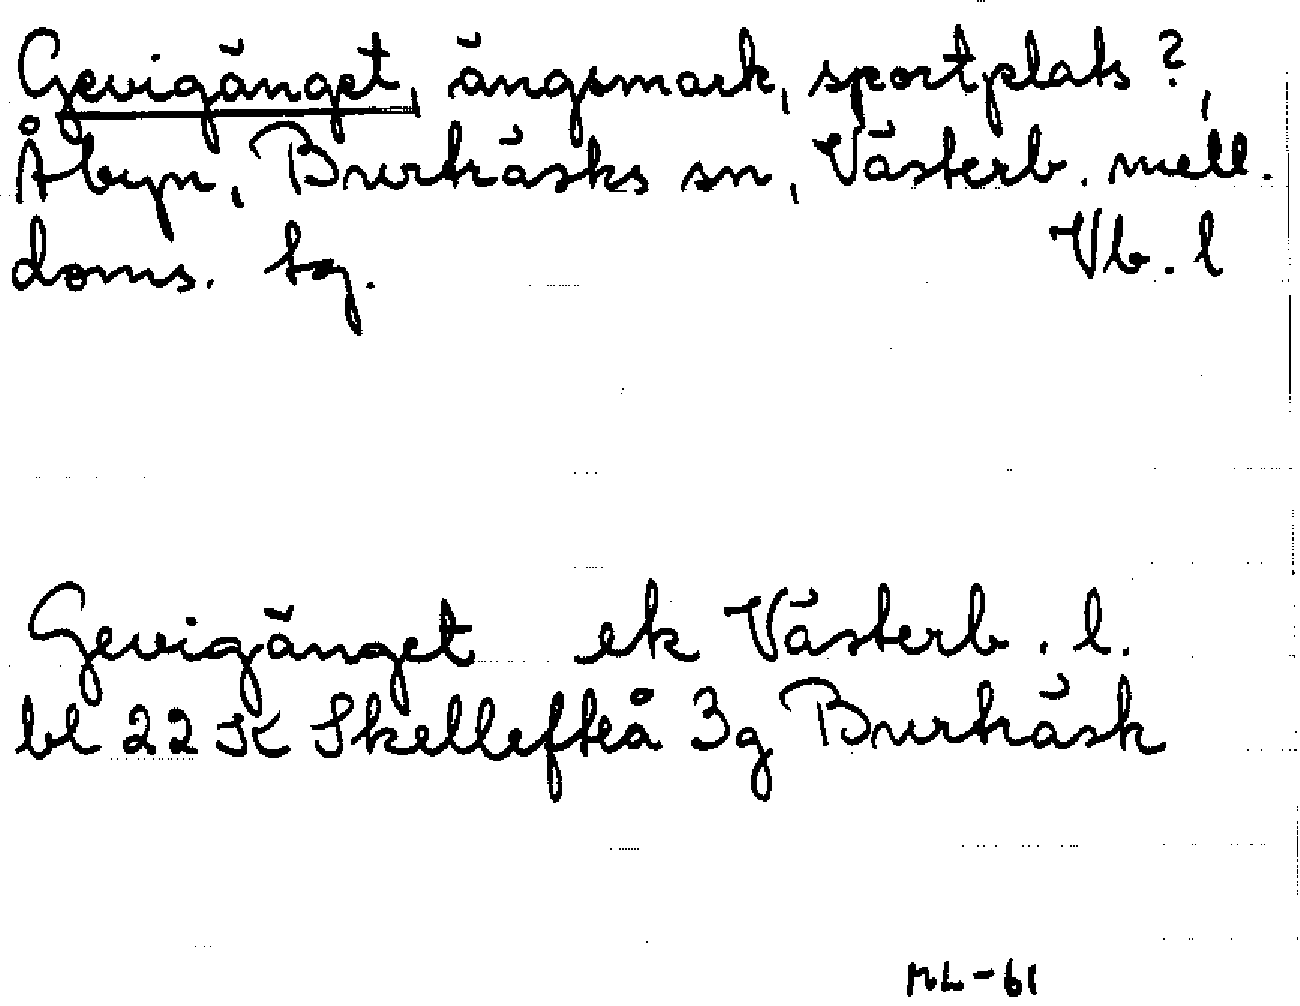 Gevigänget, ängsmark, sportplats?,
Åbyn, Burträsks sn, Västerb. mell.
doms. tg. Vb. l
Gevigänget ek Västerb. l.
bl 22 K Skellefteå 3g Burträsk
ML-61